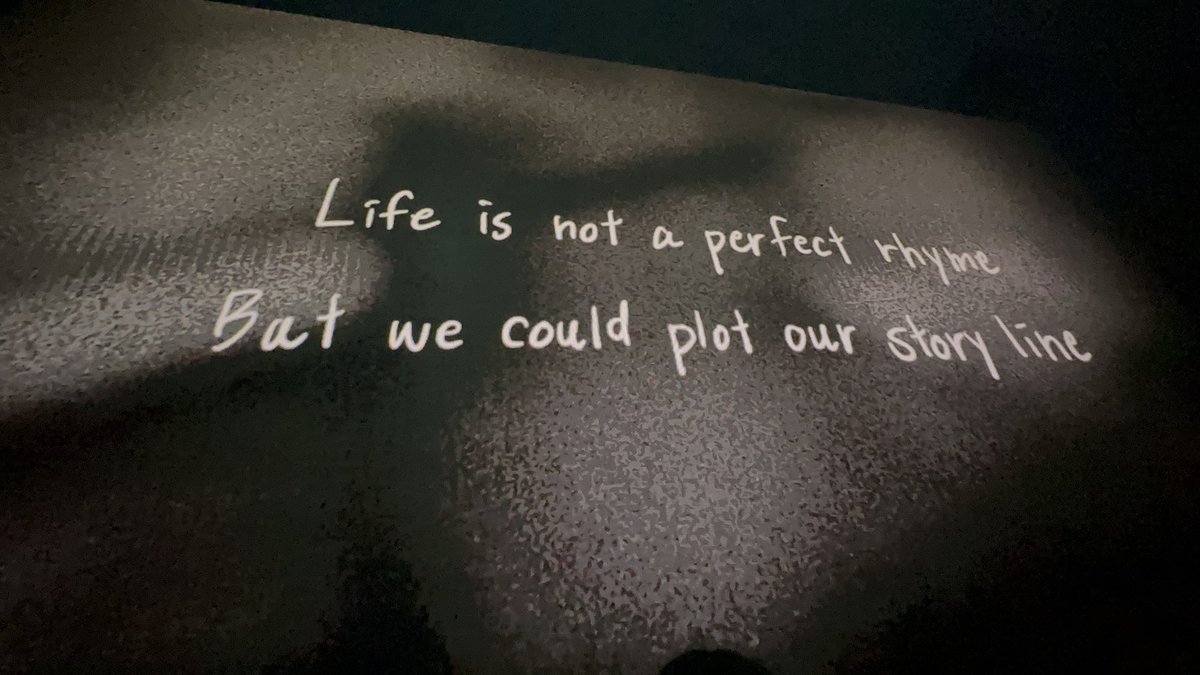 Life is not a perfect rhyme
But we could plot our story line